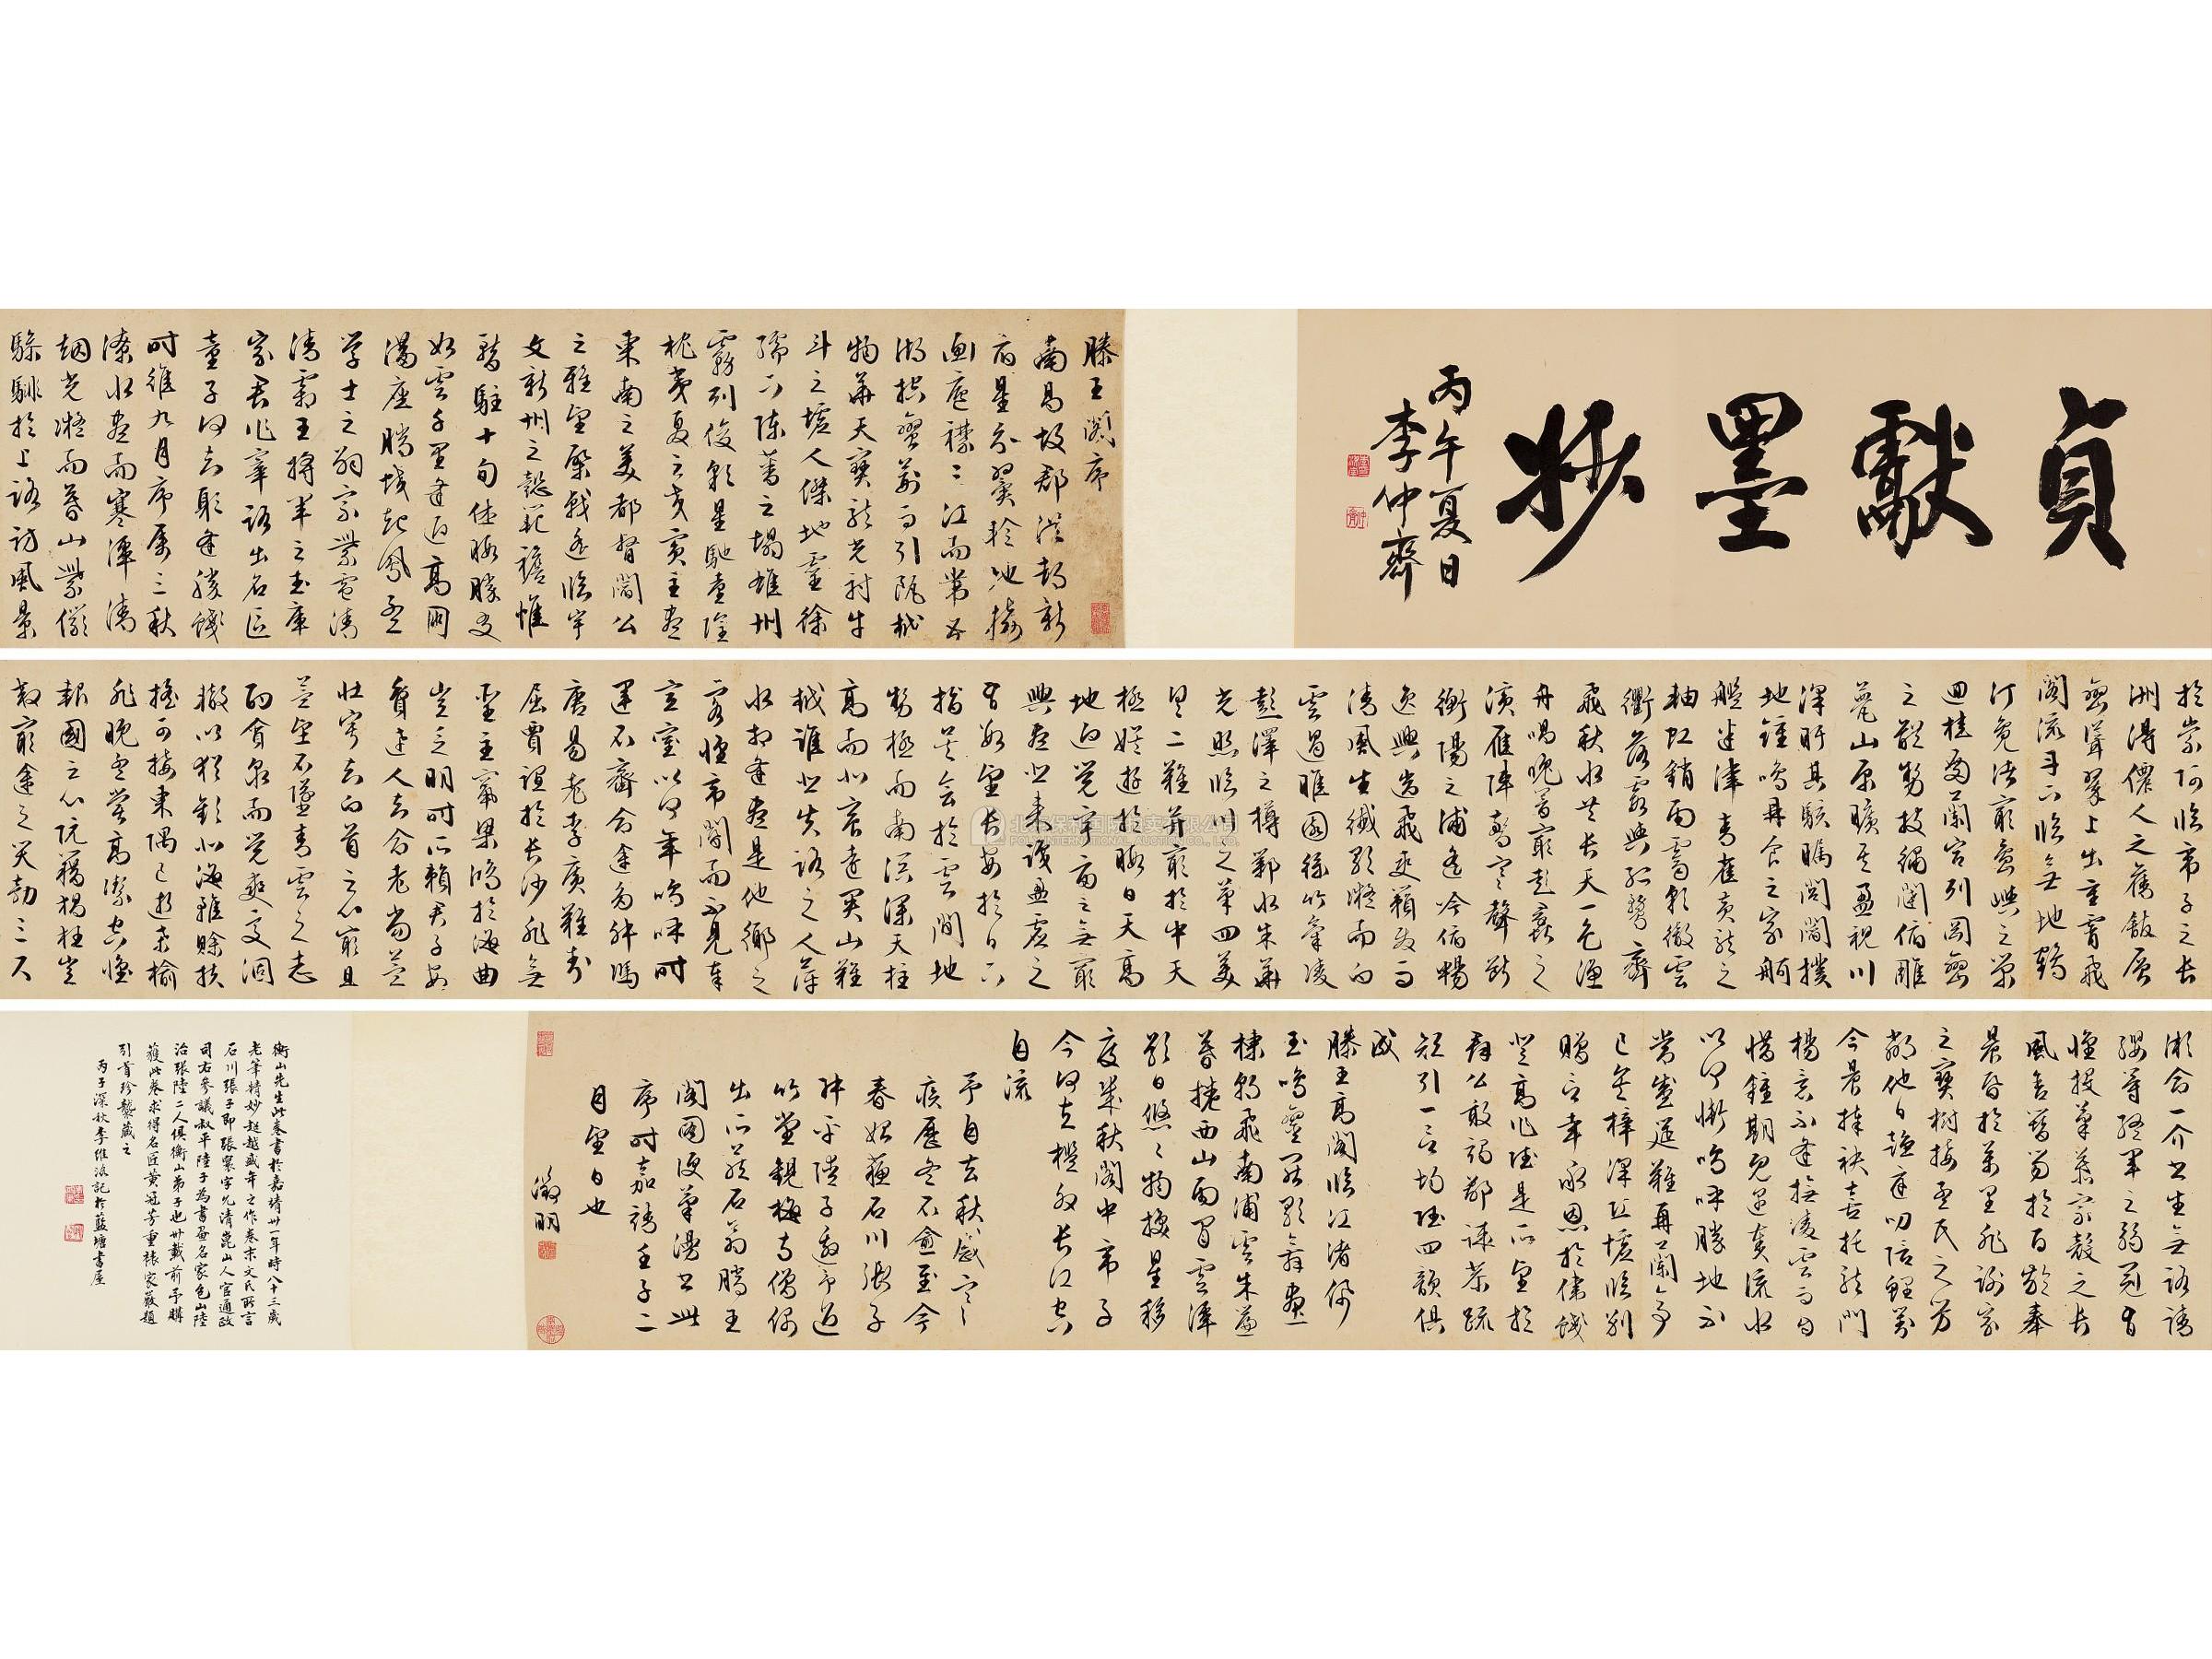 貞獻墨妙
丙午夏日
李仲齋
滕王閣序
南昌故郡洪都新
府星分翼軫地接
衡廬襟三江而帶五
湖控蠻荊而引甌越
物華天寶龍光射牛
斗之墟人傑地靈徐
孺下陳蕃之榻雄州
霧列俊彩星馳臺隍
枕夷夏之交賓主盡
東南之美都督閻公
之雅望棨戟遙臨宇
文新州之懿範襜帷
暫駐十旬休暇勝友
如雲千里逢迎高朋
滿座騰蛟起鳳孟
學士之詞宗紫電清
清霜王將軍之武庫
家君作宰路出名區
童子何知躬逢勝餞
時維九月序屬三秋
潦水盡而寒潭清
烟光凝而暮山紫儼
驂騑於上路訪風景
於崇阿臨帝子之長
洲得僊人之舊館層
巒聳翠上出重霄飛
閣流丹下臨無地鶴
汀鳧渚窮島嶼之縈
迴桂殿蘭宮列岡巒
之體勢披繡闥俯雕
甍山原曠其盈視川
澤盱其駭矚閭閻撲
地鍾鳴鼎食之家舸
艦迷津青雀黃龍之
軸虹銷雨霽彩徹雲
衢落霞與孤鶩齊
飛秋水共長天一色漁
舟唱晚響窮彭蠡之
濱雁陣驚寒聲斷
衡陽之浦遙吟俯暢
逸興遄飛爽籟發而
清風生纖歌凝而白
雲遏睢園綠竹氣凌
彭澤之樽鄴水朱華
光照臨川之筆四美
具二難并窮於中天
極娛遊於暇日天高
地迥覺宇宙之無窮
興盡悲來識盈虛之
有數望長安於日下
指吳會於雲間地
勢極而南溟深天柱
高而北辰遠關山難
越誰悲失路之人萍
水相逢盡是他鄉之
客懷帝閽而不見奉
宣室以何年嗚呼時
運不齊命途多舛馮
唐易老李廣難封
屈賈誼於長沙非無
聖主竄梁鴻於海曲
豈乏明時所賴君子安
貧達人知命老當益
壯寧知白首之心窮且
益堅不墜青雲之志
酌貪泉而覺爽處涸
轍以猶歡北海雖賒扶
搖可接東隅已逝桑榆
非晚孟嘗高潔空懷
報國之心阮籍猖狂豈
效窮途之哭勃三尺
微命一介書生無路請
纓等終軍之弱冠有
懷投筆慕宗慤之長
風舍簪笏於百齡奉
晨昏於萬里非謝家
之寶樹接孟氏之芳
鄰他日趨庭叨陪鯉對
今晨捧袂喜託龍門
楊意不逢撫凌雲而自
惜鍾期既遇奏流水
以何慚嗚呼勝地不
常盛筵難再蘭亭
已矣梓澤丘墟臨別
贈言幸承恩於偉餞
登高作賦是所望於
群公敢竭鄙誠恭疏
短引一言均賦四韻俱
成
滕王高閣臨江渚佩
玉鳴鸞罷歌舞畫
棟朝飛南浦雲朱簾
暮捲西山雨閒雲潭
影日悠悠物換星移
度幾秋閣中帝子
今何在檻外長江空
自流
予自去秋感寒
疾歷冬不愈至今
春始蘇石川張子
叔平陸子邀予過
竹堂觀梅寺僧
出所藏石翁滕王
閣圖便筆漫書此
序時嘉靖壬子二
月望日也
徵明
衡山先生此卷書於嘉靖卅一年時八十三歲
老筆精妙超越盛年之作卷末文氏所言
石川張子即張寰字允清崑山人官通政
司右參議叔平陸子為書畫名家包山陸
治張陸二人俱衡山弟子也卅載前予購
獲此卷求得名匠黃冠芳重裱家嚴題
引首珍襲藏之
丙子深秋李維波記於藍塘書屋
北京保利國際拍賣有限公司
POLY INTERNATIONAL AUCTION CO., LTD.